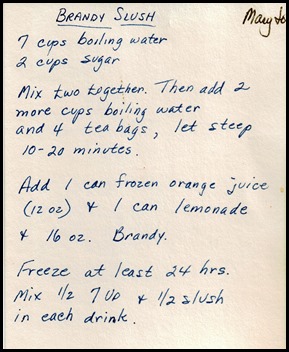 BRANDY SLUSH
Mary
7 cups boiling water
2 cups sugar
Mix two together. Then add 2
more cups boiling water
and 4 tea bags, let steep
10-20 minutes.
Add 1 can frozen orange juice
(12 oz) & 1 can lemonade
& 16 oz. Brandy.
Freeze at least 24 hrs.
Mix 1/2 7 Up & 1/2 slush
in each drink.